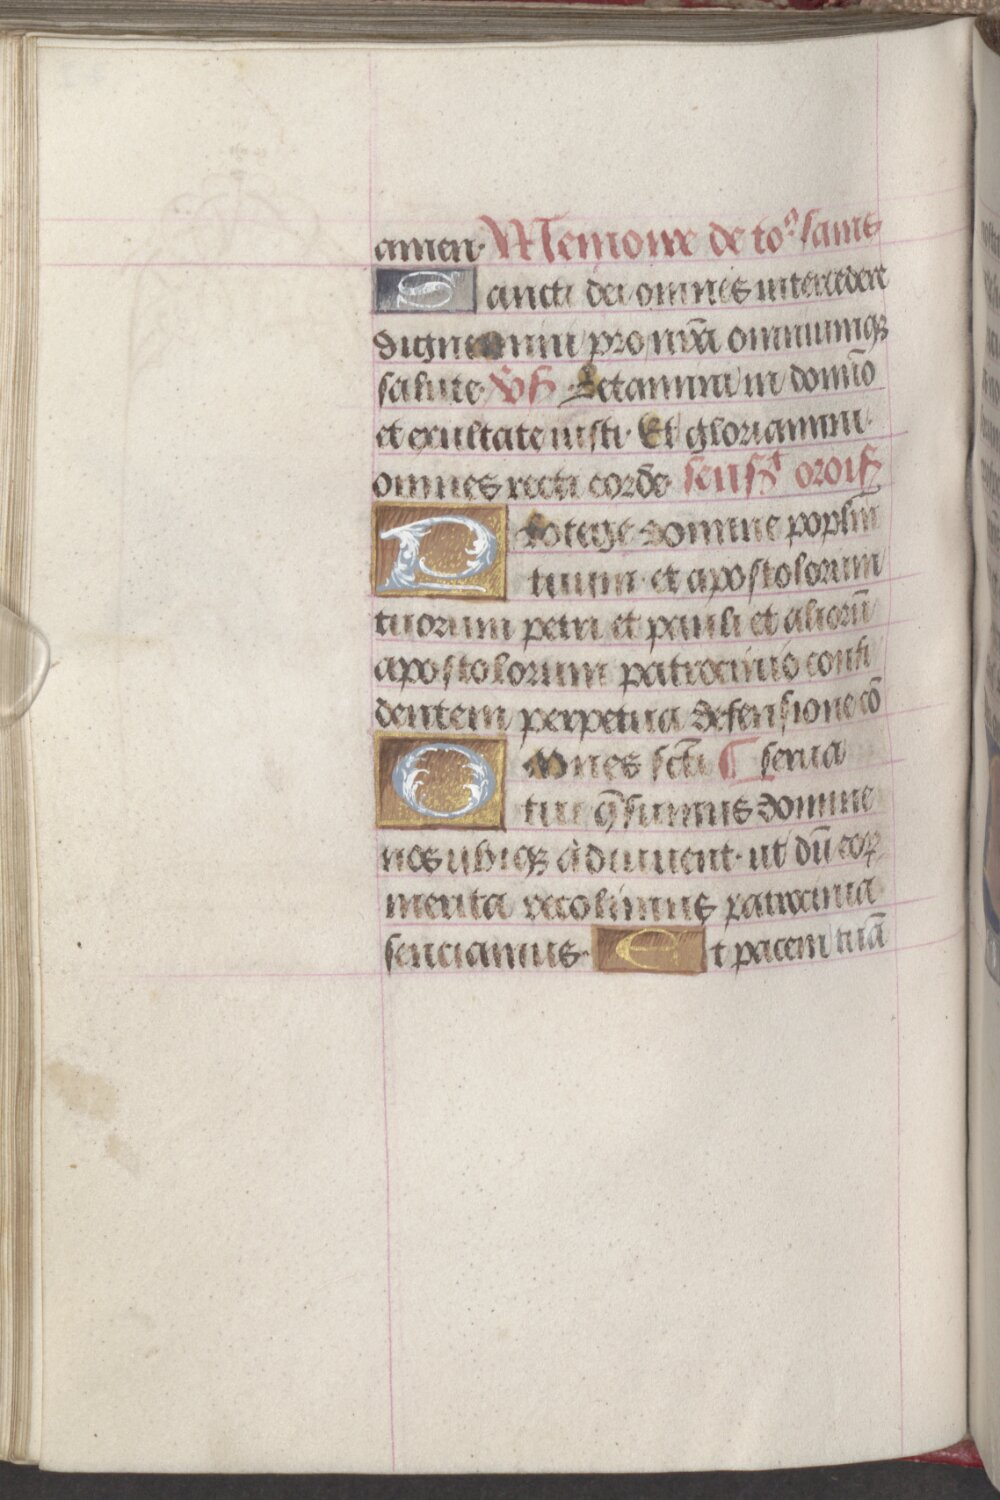 amen. Memoire de toꝰ sains
Sancti dei omnes intercedere
dignemini pro nr̄a omniumqꝫ
salute. v̄s. Letamini in domino
et exultate iusti. Et gloriamini.
omnes recti corde. sensꝭt orois
Protege domine popl̄m
tuum. et apostolorum
tuorum petri et pauli et aliorū
apostolorum patrocinio confi
dentem perpetua defensione cō
Omnes sc̄ti ¶ serua
tui q̄sumus domine
nos ubiqꝫ adiuuent. ut dū eoꝝ
merita recolimus patrocinia
senciamus. Et pacem tuā